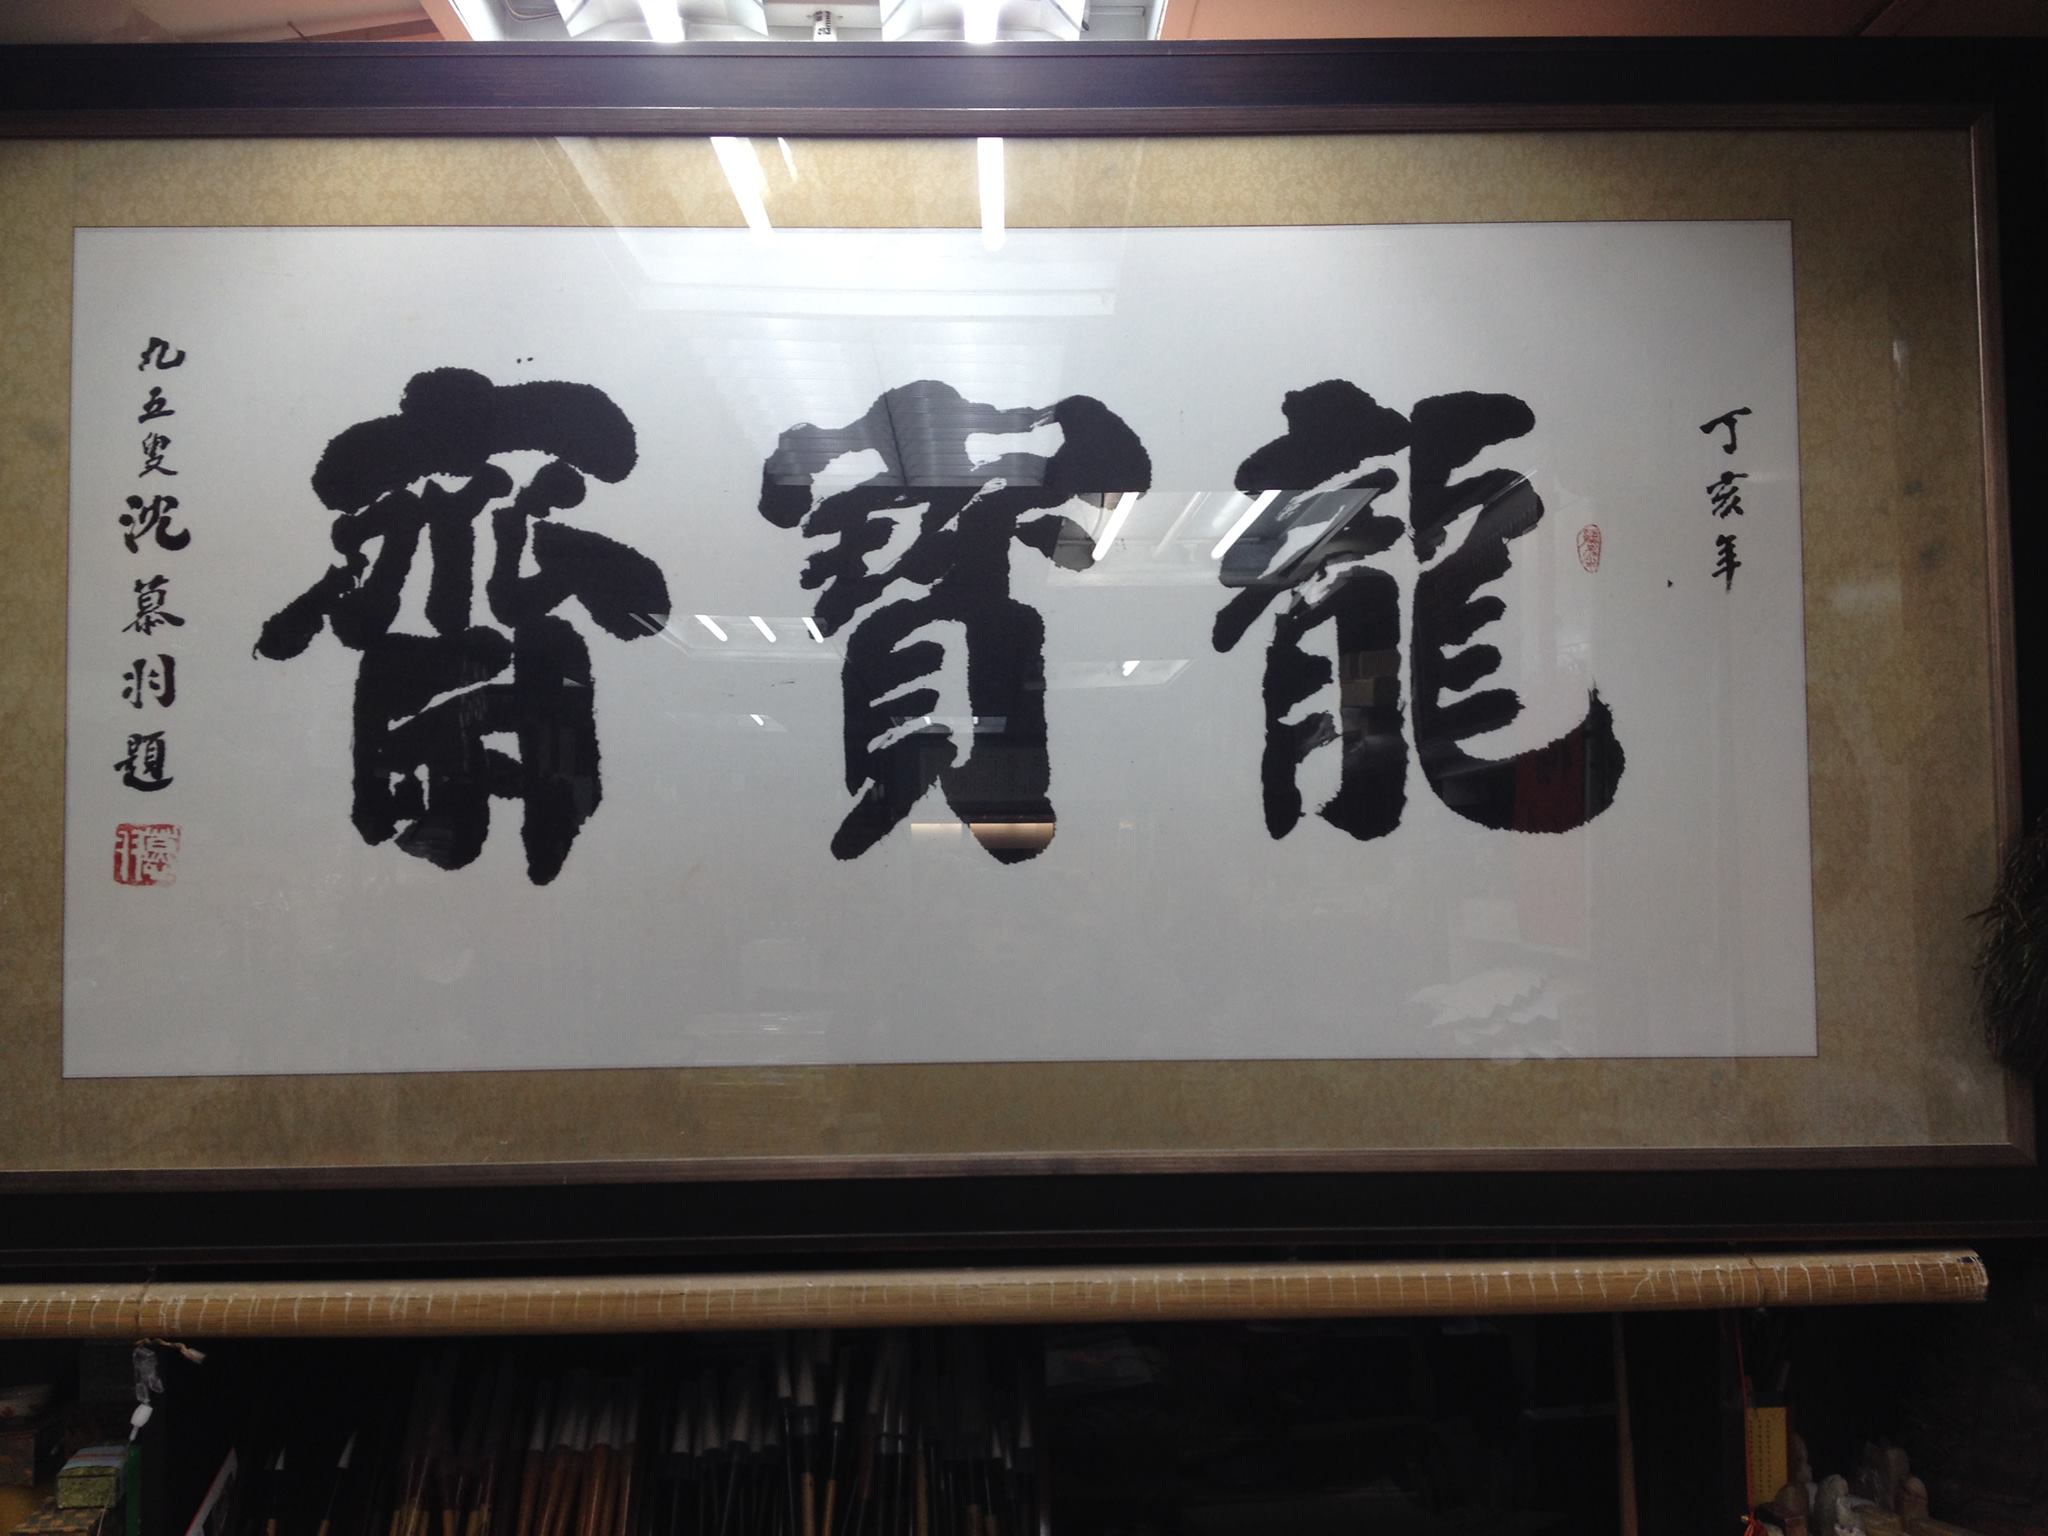 丁亥年
龍寶齋
九五叟沈慕羽題
慕羽